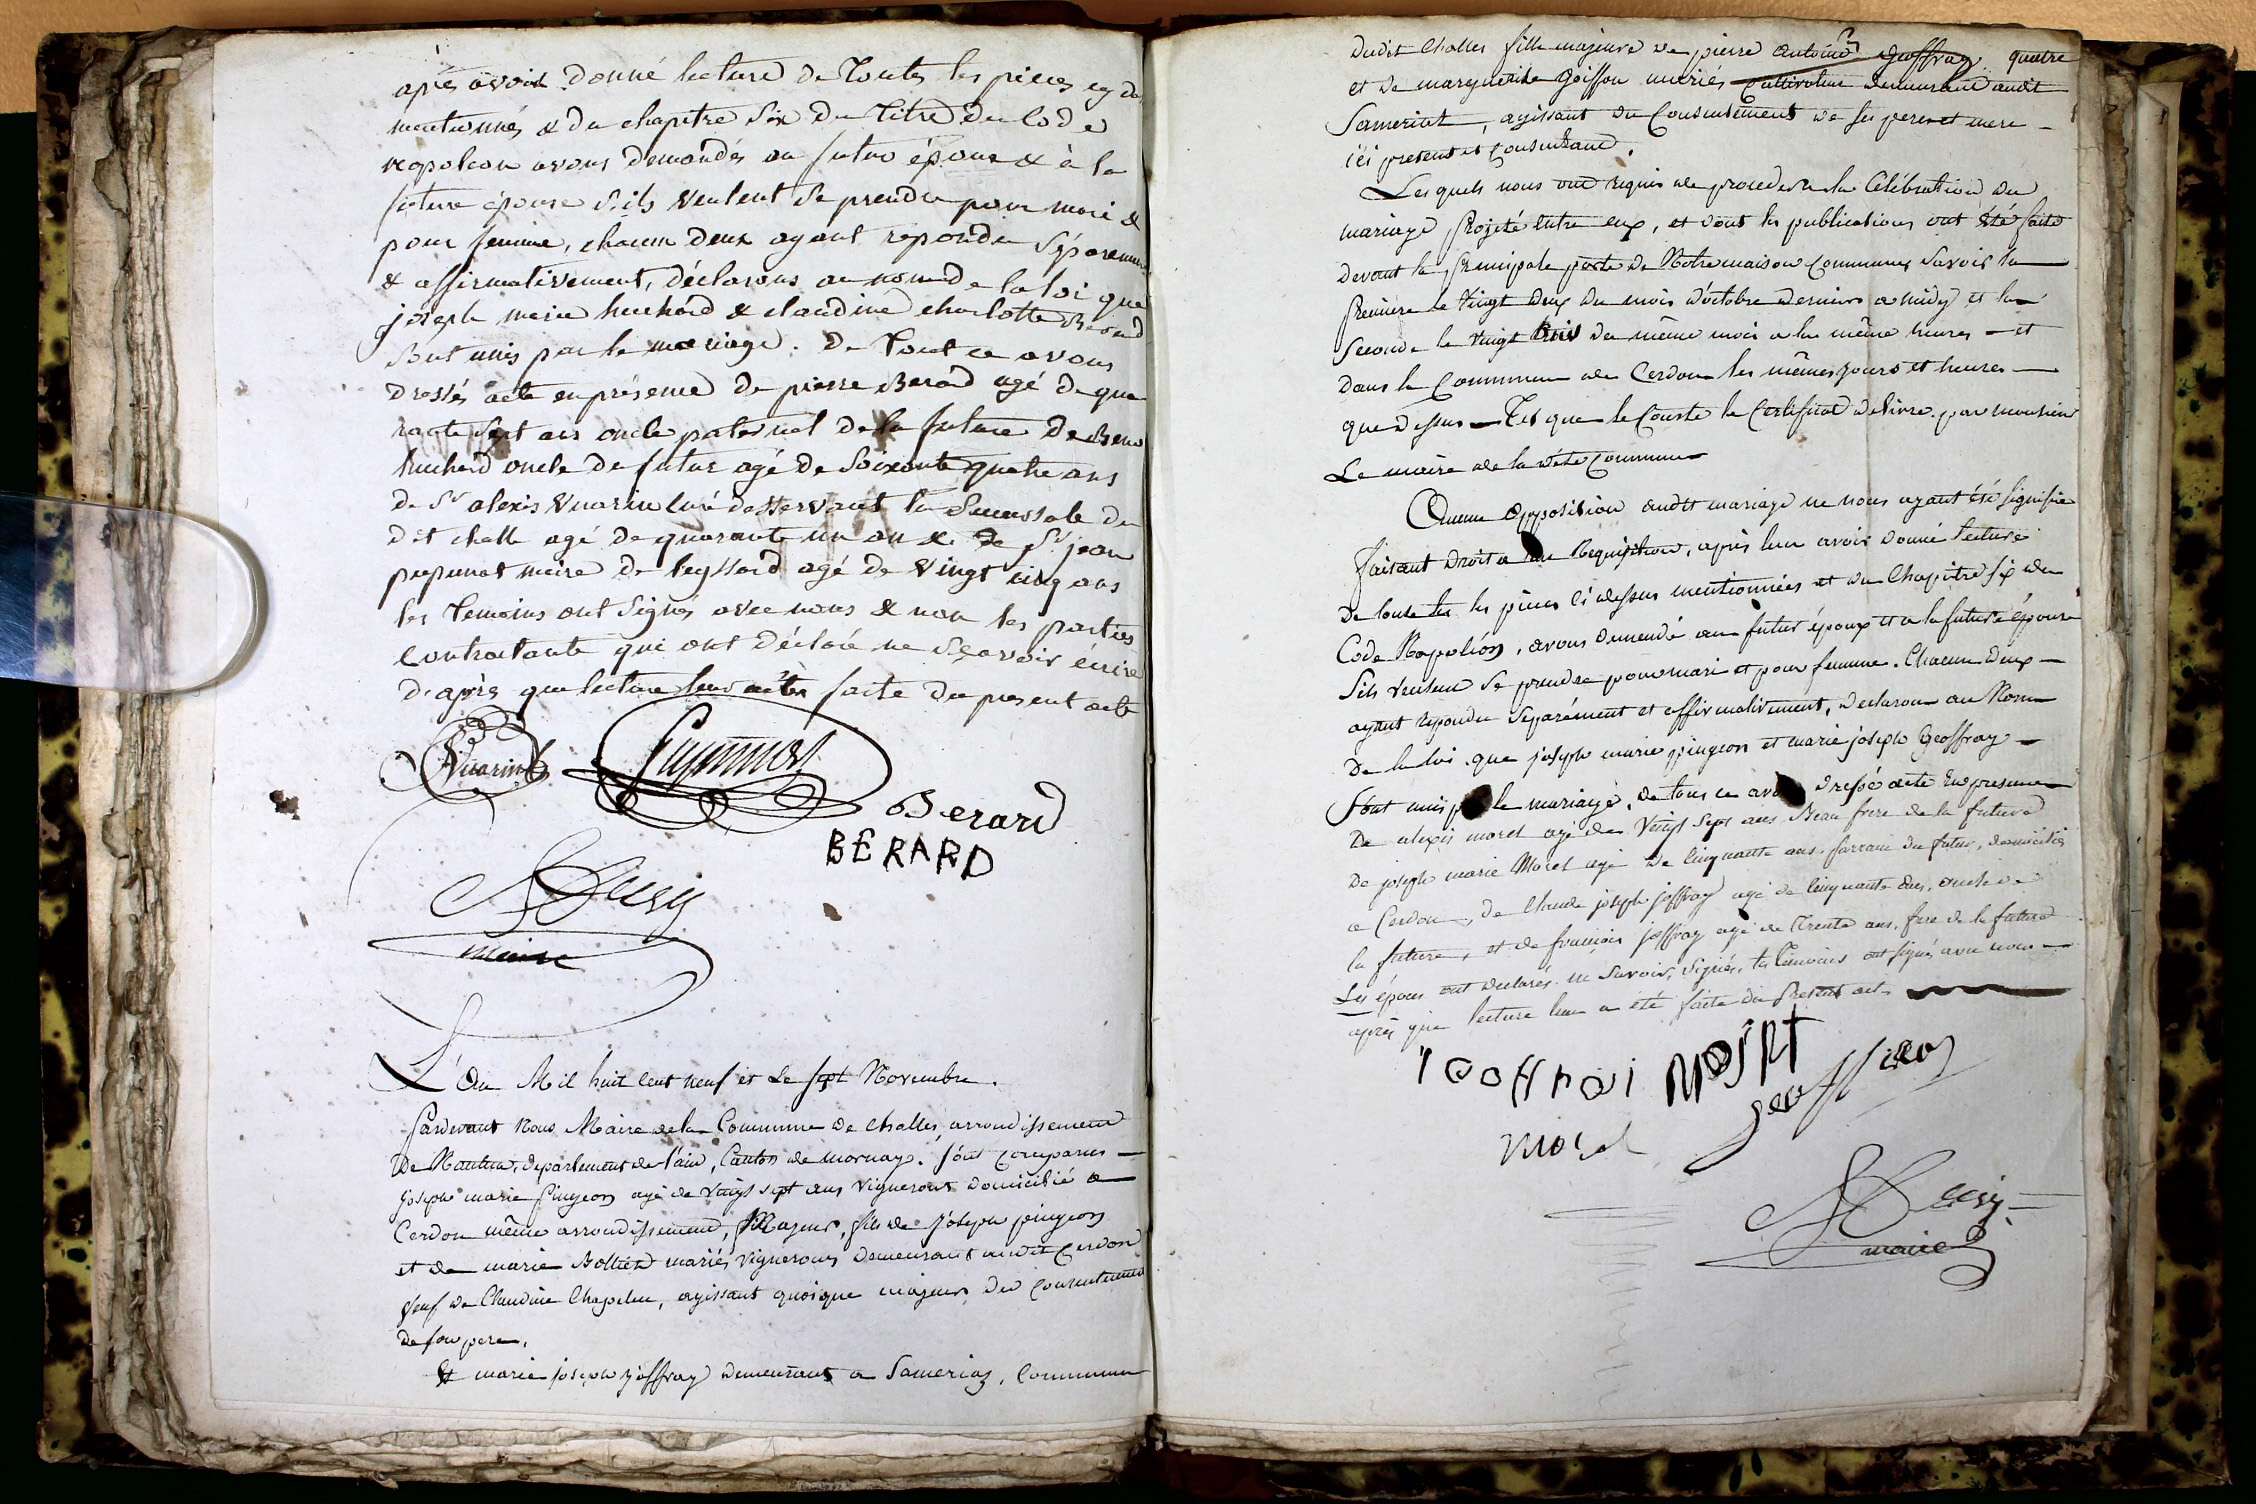 après avoir donné lecture de Toutes les pieces cy de
mentionnés & du chapitre Six du Titre du Code
napoleon avons demandés au futur époux & à la
future épouse s'ils veulent se prendre pour mari &
pour femme, chacun deux ayant repondu séparemen
& affirmativement, déclarons au nom de la loi que
joseph marie huchard & claudine charlotte Berard
sont unis par le mariage. De Tout ce avons
dressés acte en présence de pierre Berard agé de qua
rante sept ans oncle paternel de la future De
huchard oncle du futur agé de soixante quatre ans
de Sr alexis Vuarin curé desservant la Sucursale du
dit challe agé de quarante un an & de Sr jean
maire de leyssard agé de vingt cinq ans
les Temoins ont signés avec nous & non les parties
Contractante qui ont déclaré ne sçavoir écrire
d'après que lecture leur a été faite du present acte
Vuarin
Berard
BERARD
maire
L'An Mil huit Cent neuf et Le sept Novembre.
Pardevant Nous Maire de la Commune de Challes, arrondissement
De Nantua, departement de l'ain, Canton de mornay. sont comparus
Joseph marie Pingeon agé de vingt sept ans vigneront domicilié a
Cerdon même arrondissement, Majeur, fils de joseph pingeon
et de marie Bolliet mariés vignerons demeurant audit Cerdon
veuf de Claudine Chapelu, agissant quoique majeur du consentement
de son pere.
Et marie joseph joffray demeurant a Samerias, Commune
dudit Challes fille majeure de pierre antoine Geoffray quatre
et de marguerite Goiffon mariés cultivateur demeurant audit
Sameriat, agissant du Consentement de ses pere et mere
ici present et consentant.
Les quels nous ont requis de proceder a la Célébration du
mariage projeté entre eux, et dont les publications ont été faite
devant la principale porte de Notre maison Commune, savoir la
premiere le vingt deux du mois d'octobre dernier a midy et la
seconde le vingt trois du même mois a la même heures et
dans la Commune de Cerdon les mêmes jours et heures
que dessus Tel que le Conste le Certificat delivre par monsieur
Le maire de la dite Commune
Aucune opposition audit mariage ne nous ayant été signifie
faisant droit a leur Requisition, après leur avoir donné lecture
De toute les les pieces ci dessus mentionnées et du Chapitre six du
Code Napoléon, avons demendé au futur époux et a la future épouse
Sils veulent se prendre pour mari et pour femme. Chacun deux
ayant repondu separément et affirmativement, declarons au Nom
De la loi que joseph marie pingeon et marie joseph Geoffray
Sont unis par le mariage, de tous ce avons dressé acte En presence
De alexis moret agé de vingt sept ans Beau frere de la future
De joseph marie Moret agé de Cinquante ans parrain du futur, domiciliés
a Cerdon, de Claude joseph joffray agé de cinquante ans, oncle de
la future, et de francois joffray agé de Trente ans, frere de la future
Les époux ont declarés ne savoir signer, les temoins ont signé avec nous
après que lecture leur a été faite du present acte
Moret
maire